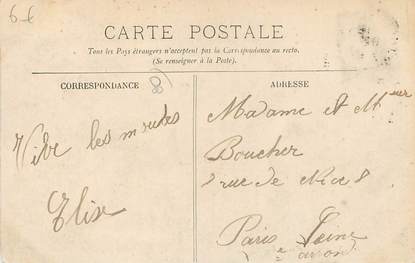 6 €
CARTE POSTALE
Tous les Pays étrangers n'acceptent pas la Correspondance au recto.
(Se renseigner à la Poste).
CORRESPONDANCE
ADRESSE
Vive les
Elise
Madame et Mr
Boucher
rue de Nice 8
Paris Seine